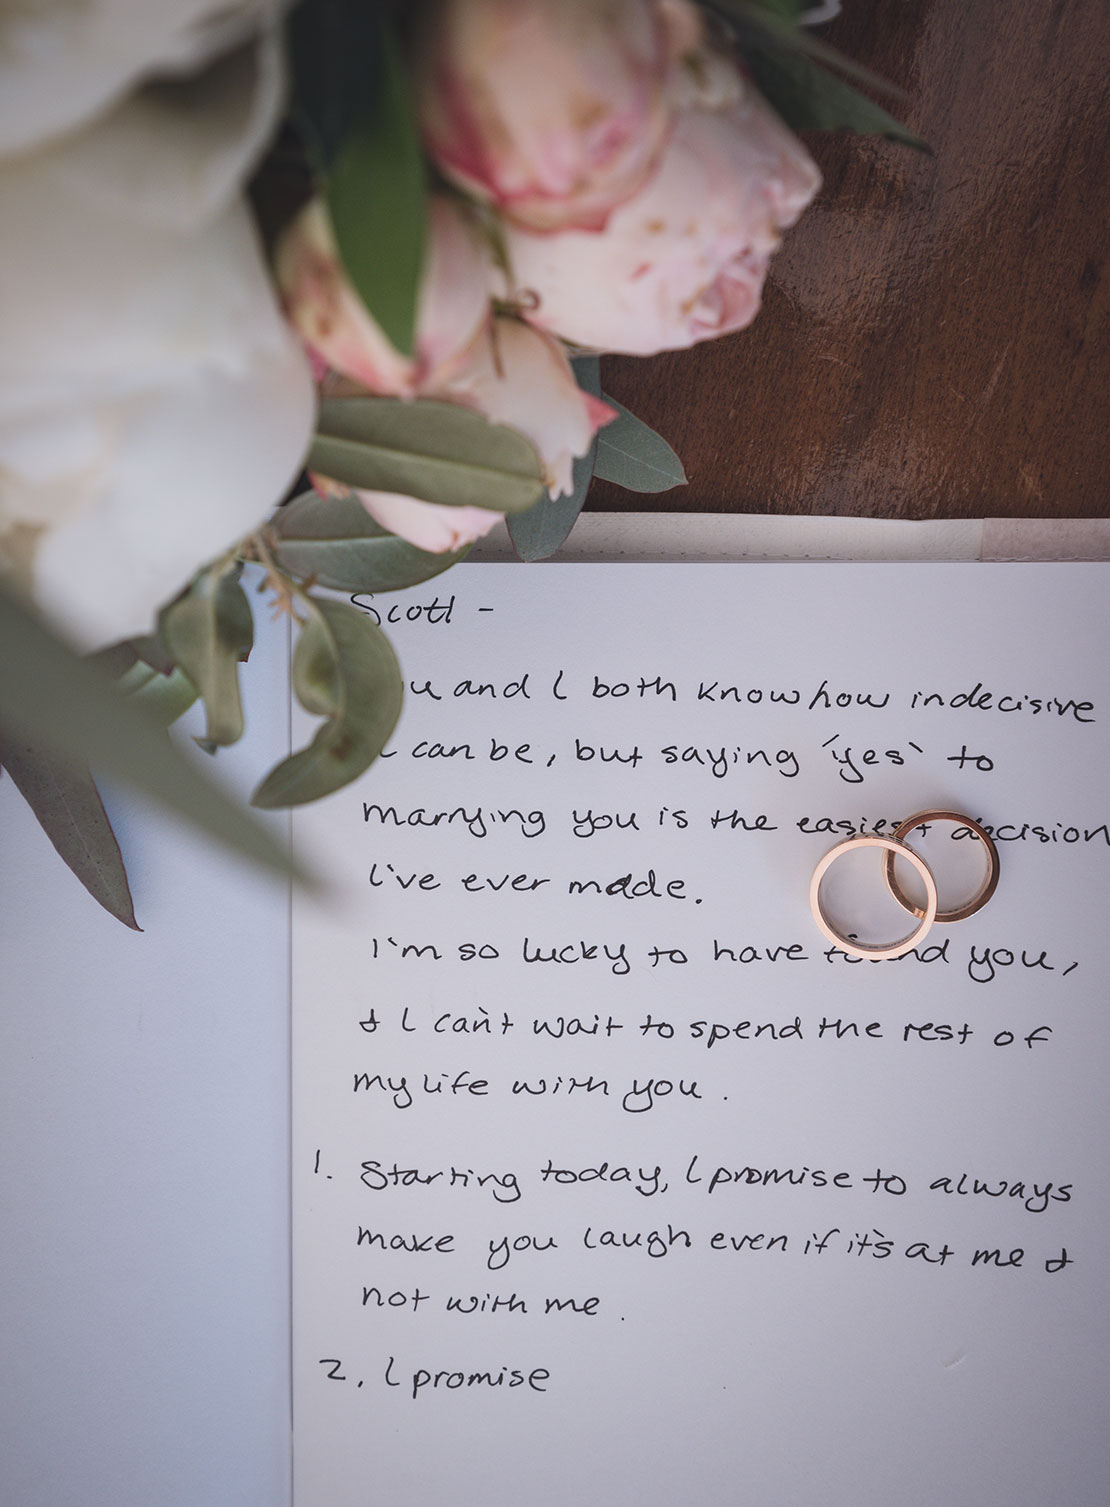 Scott -
and I both know how indecisive
I can be, but saying 'yes' to
marrying you is the easiest decision
I've ever made.
I'm so lucky to have found you,
& I can't wait to spend the rest of
my life with you.
1. Starting today, I promise to always
make you laugh even if it's at me &
not with me.
2. I promise